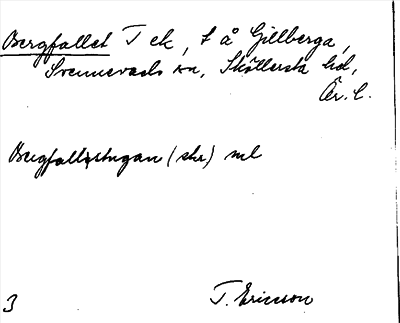 Bergfallet T ek, t å Gillberga,
Svennevads sn, Sköllersta hd,
Ör. l.
Bergfallstugan (skr) ml
3
T. Ericsson